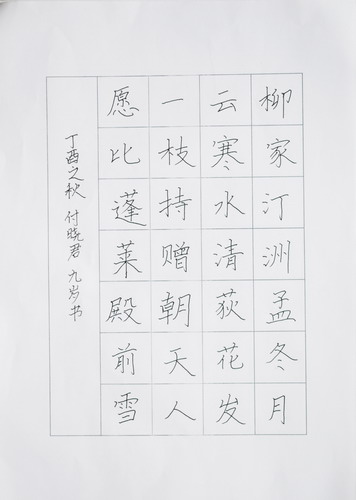 柳家汀洲孟冬月
云寒水清荻花发
一枝持赠朝天人
愿比蓬莱殿前雪
丁酉之秋 付晓君 九岁书